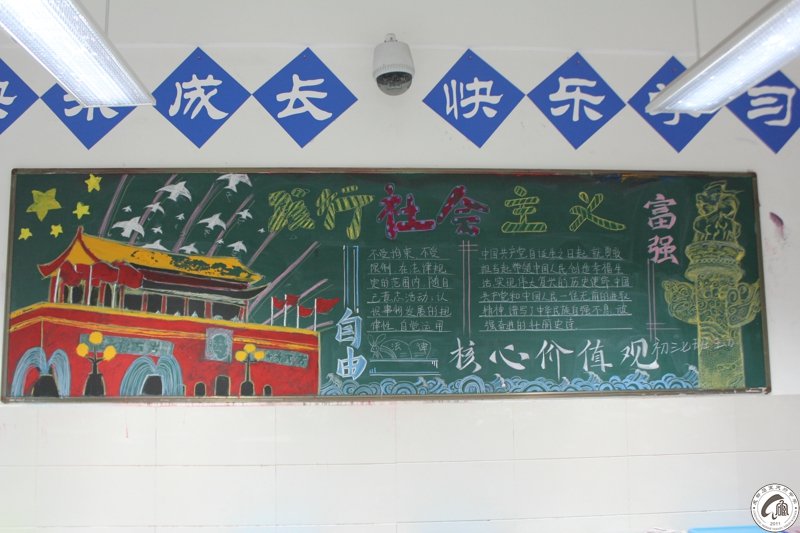 快乐成长
快乐学习
践行社会主义
核心价值观
富强
自由
不受拘束,不受
限制。在法律规
定的范围内,随自
己意志活动;认
识事物发展的规
律性,自觉运用
中国共产党自诞生之日起,就勇敢
担当起带领中国人民创造幸福生
活,实现伟大复兴的历史使命,中国
共产党和中国人民一往无前的进取
精神,谱写了中华民族自强不息,顽
强奋进的壮丽史诗
初三七班
2011